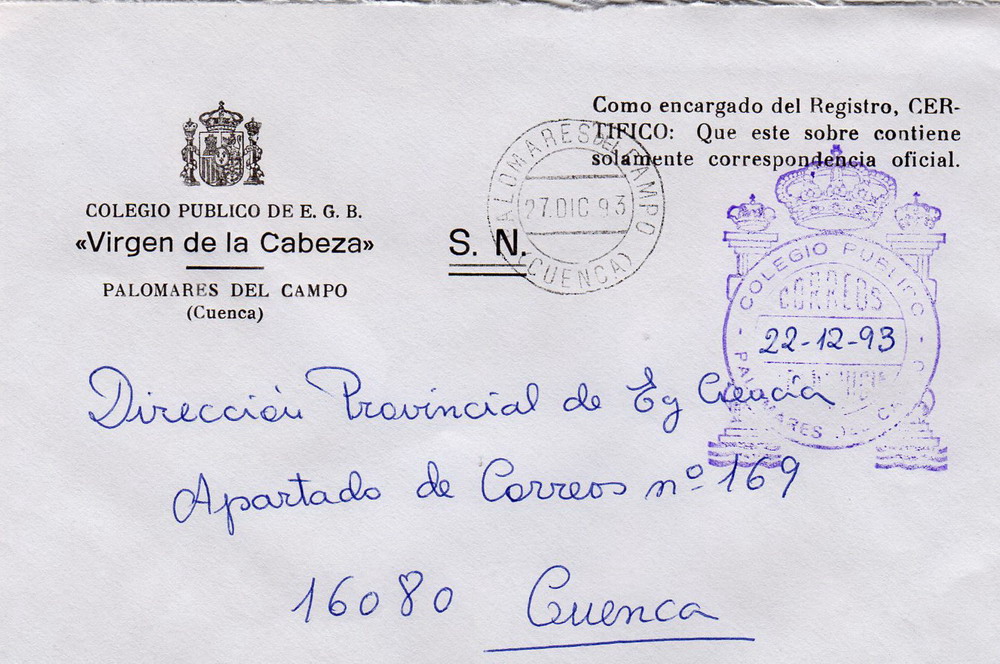 Como encargado del Registro, CER-
TIFICO: Que este sobre contiene
solamente correspondencia oficial.
COLEGIO PUBLICO DE E. G. B.
«Virgen de la Cabeza»
PALOMARES DEL CAMPO
(Cuenca)
S. N.
PALOMARES DEL CAMPO
27.DIC 93
(CUENCA)
COLEGIO PUBLICO
CORREOS
22-12-93
PALOMARES DEL
Dirección Provincial de
Apartado de Correos nº 169
16080 Cuenca